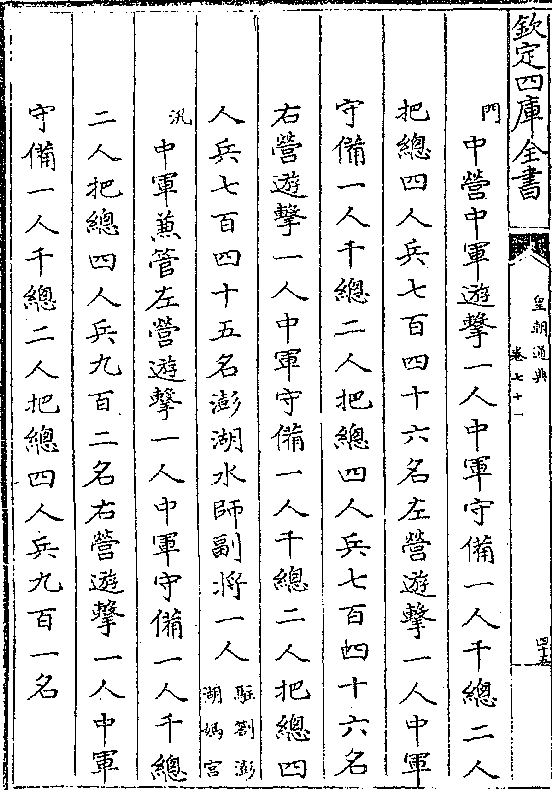 欽定四庫全書
皇朝通典
卷七十一
四十五
門
中營中軍遊擊一人中軍守備一人千總二人
把總四人兵七百四十六名左營遊擊一人中軍
守備一人千總二人把總四人兵七百四十六名
右營遊擊一人中軍守備一人千總二人把總四
人兵七百四十五名澎湖水師副將一人
駐劄澎
湖媽宮
汛
中軍兼管左營遊擊一人中軍守備一人千總
二人把總四人兵九百二名右營遊擊一人中軍
守備一人千總二人把總四人兵九百一名